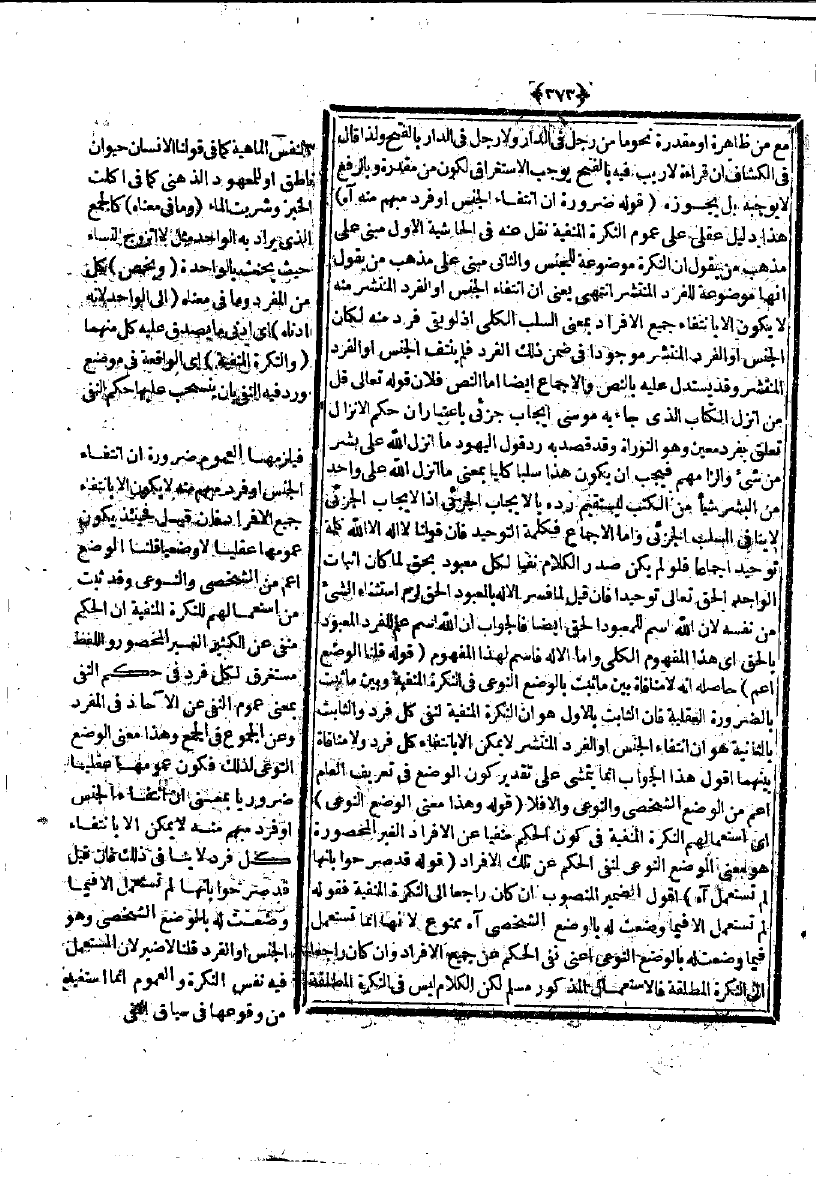 ﴿٣٧٣﴾
مع من ظاهرة او مقدرة نحو ما من رجل فى الدار ولا رجل فى الدار بالفتح ولذا قال
فى الكشاف ان قراءة لا ريب فيه بالفتح يوجب الاستغراق لكون من مقدرة وبالرفع
لا يوجبه بل يجوزه ( قوله ضرورة ان انتفاء الجنس او فرد مبهم منه آه )
هذا دليل عقلى على عموم النكرة المنفية نقل عنه فى الحاشية الاول مبنى على
مذهب من يقول ان النكرة موضوعة للجنس والثانى مبنى على مذهب من يقول
انها موضوعة للفرد المنتشر انتهى يعنى ان انتفاء الجنس او الفرد المنتشر منه
لا يكون الا بانتفاء جميع الافراد بمعنى السلب الكلى اذ لو بقى فرد منه لكان
الجنس او الفرد المنتشر موجودا فى ضمن ذلك الفرد فلم ينتف الجنس او الفرد
المنتشر وقد يستدل عليه بالنص والاجماع ايضا اما النص فلان قوله تعالى قل
من انزل الكتاب الذى جاء به موسى ايجاب جزئى باعتبار ان حكم الانزال
تعلق بفرد معين وهو التوراة وقد قصد به رد قول اليهود ما انزل الله على بشر
من شئ والزامهم فيجب ان يكون هذا سلبا كليا بمعنى ما انزل الله على واحد
من البشر شيأ من الكتب ليستقيم رده بالايجاب الجزئى اذ الايجاب الجزئى
لا ينافى السلب الجزئى واما الاجماع فكلمة التوحيد فان قولنا لا اله الا الله كلمة
توحيد اجماعا فلو لم يكن صدر الكلام نفيا لكل معبود بحق لما كان اثبات
الواحد الحق تعالى توحيدا فان قيل لما فسر الاله بالمعبود الحق لزم استثناء الشئ
من نفسه لان الله اسم للمعبود الحق ايضا فالجواب ان الله اسم علم للفرد المعبود
بالحق اى هذا المفهوم الكلى واما الاله فاسم لهذا المفهوم ( قوله قلنا الوضع
اعم ) حاصله انه لا منافاة بين ما ثبت بالوضع النوعى فى النكرة المنفية وبين ما ثبت
بالضرورة العقلية فان الثابت بالاول هو ان النكرة المنفية لنفى كل فرد والثابت
بالثانية هو ان انتفاء الجنس او الفرد المنتشر لا يمكن الا بانتفاء كل فرد ولا منافاة
بينهما اقول هذا الجواب انما يتمشى على تقدير كون الوضع فى تعريف العام
اعم من الوضع الشخصى والنوعى والا فلا ( قوله وهذا معنى الوضع النوعى )
اى استعمالهم النكرة المنفية فى كون الحكم منفيا عن الافراد الغير المحصورة
هو معنى الوضع النوعى لنفى الحكم عن تلك الافراد ( قوله قد صرحوا بانها
لم تستعمل آه ) اقول الضمير المنصوب ان كان راجعا الى النكرة المنفية فقوله
لم تستعمل الا فيما وضعت له بالوضع الشخصى آه ممنوع لانها انما تستعمل
فيما وضعت له بالوضع النوعى اعنى نفى الحكم عن جميع الافراد وان كان راجعا
الى النكرة المطلقة فالاستعمال المذكور مسلم لكن الكلام ليس فى النكرة المطلقة
٣ النفس الماهية كما فى قولنا الانسان حيوان
ناطق او للمعهود الذهنى كما فى اكلت
الخبز وشربت الماء ( وما فى معناه ) كالجمع
الذى يراد به الواحد مثل لا اتزوج النساء
حيث يحنث بالواحدة ( ويخص ) بكل
من المفرد وما فى معناه ( الى الواحد لانه
ادناه ) اى ادنى ما يصدق عليه كل منهما
( والنكرة المنفية ) اى الواقعة فى موضع
ورد فيه النفى بان ينسحب عليها حكم النفى
فيلزمها العموم ضرورة ان انتفاء
الجنس او فرد مبهم منه لا يكون الا بانتفاء
جميع الافراد فان قيل فحينئذ يكون
عمومها عقليا لا وضعيا قلنا الوضع
اعم من الشخصى والنوعى وقد ثبت
من استعمالهم للنكرة المنفية ان الحكم
منفى عن الكثير الغير المحصور واللفظ
مستغرق لكل فرد فى حكم النفى
بمعنى عموم النفى عن الآحاد فى المفرد
وعن الجموع فى الجمع وهذا معنى الوضع
النوعى لذلك فكون عمومها عقليا
ضروريا بمعنى ان انتفاء الجنس
او فرد مبهم منه لا يمكن الا بانتفاء
كل فرد لا ينافى ذلك فان قيل
قد صرحوا بانها لم تستعمل الا فيما
وضعت له بالوضع الشخصى وهو
الجنس او الفرد قلنا لا ضير لان المستعمل
فيه نفس النكرة والعموم انما استفيد
من وقوعها فى سياق النفى